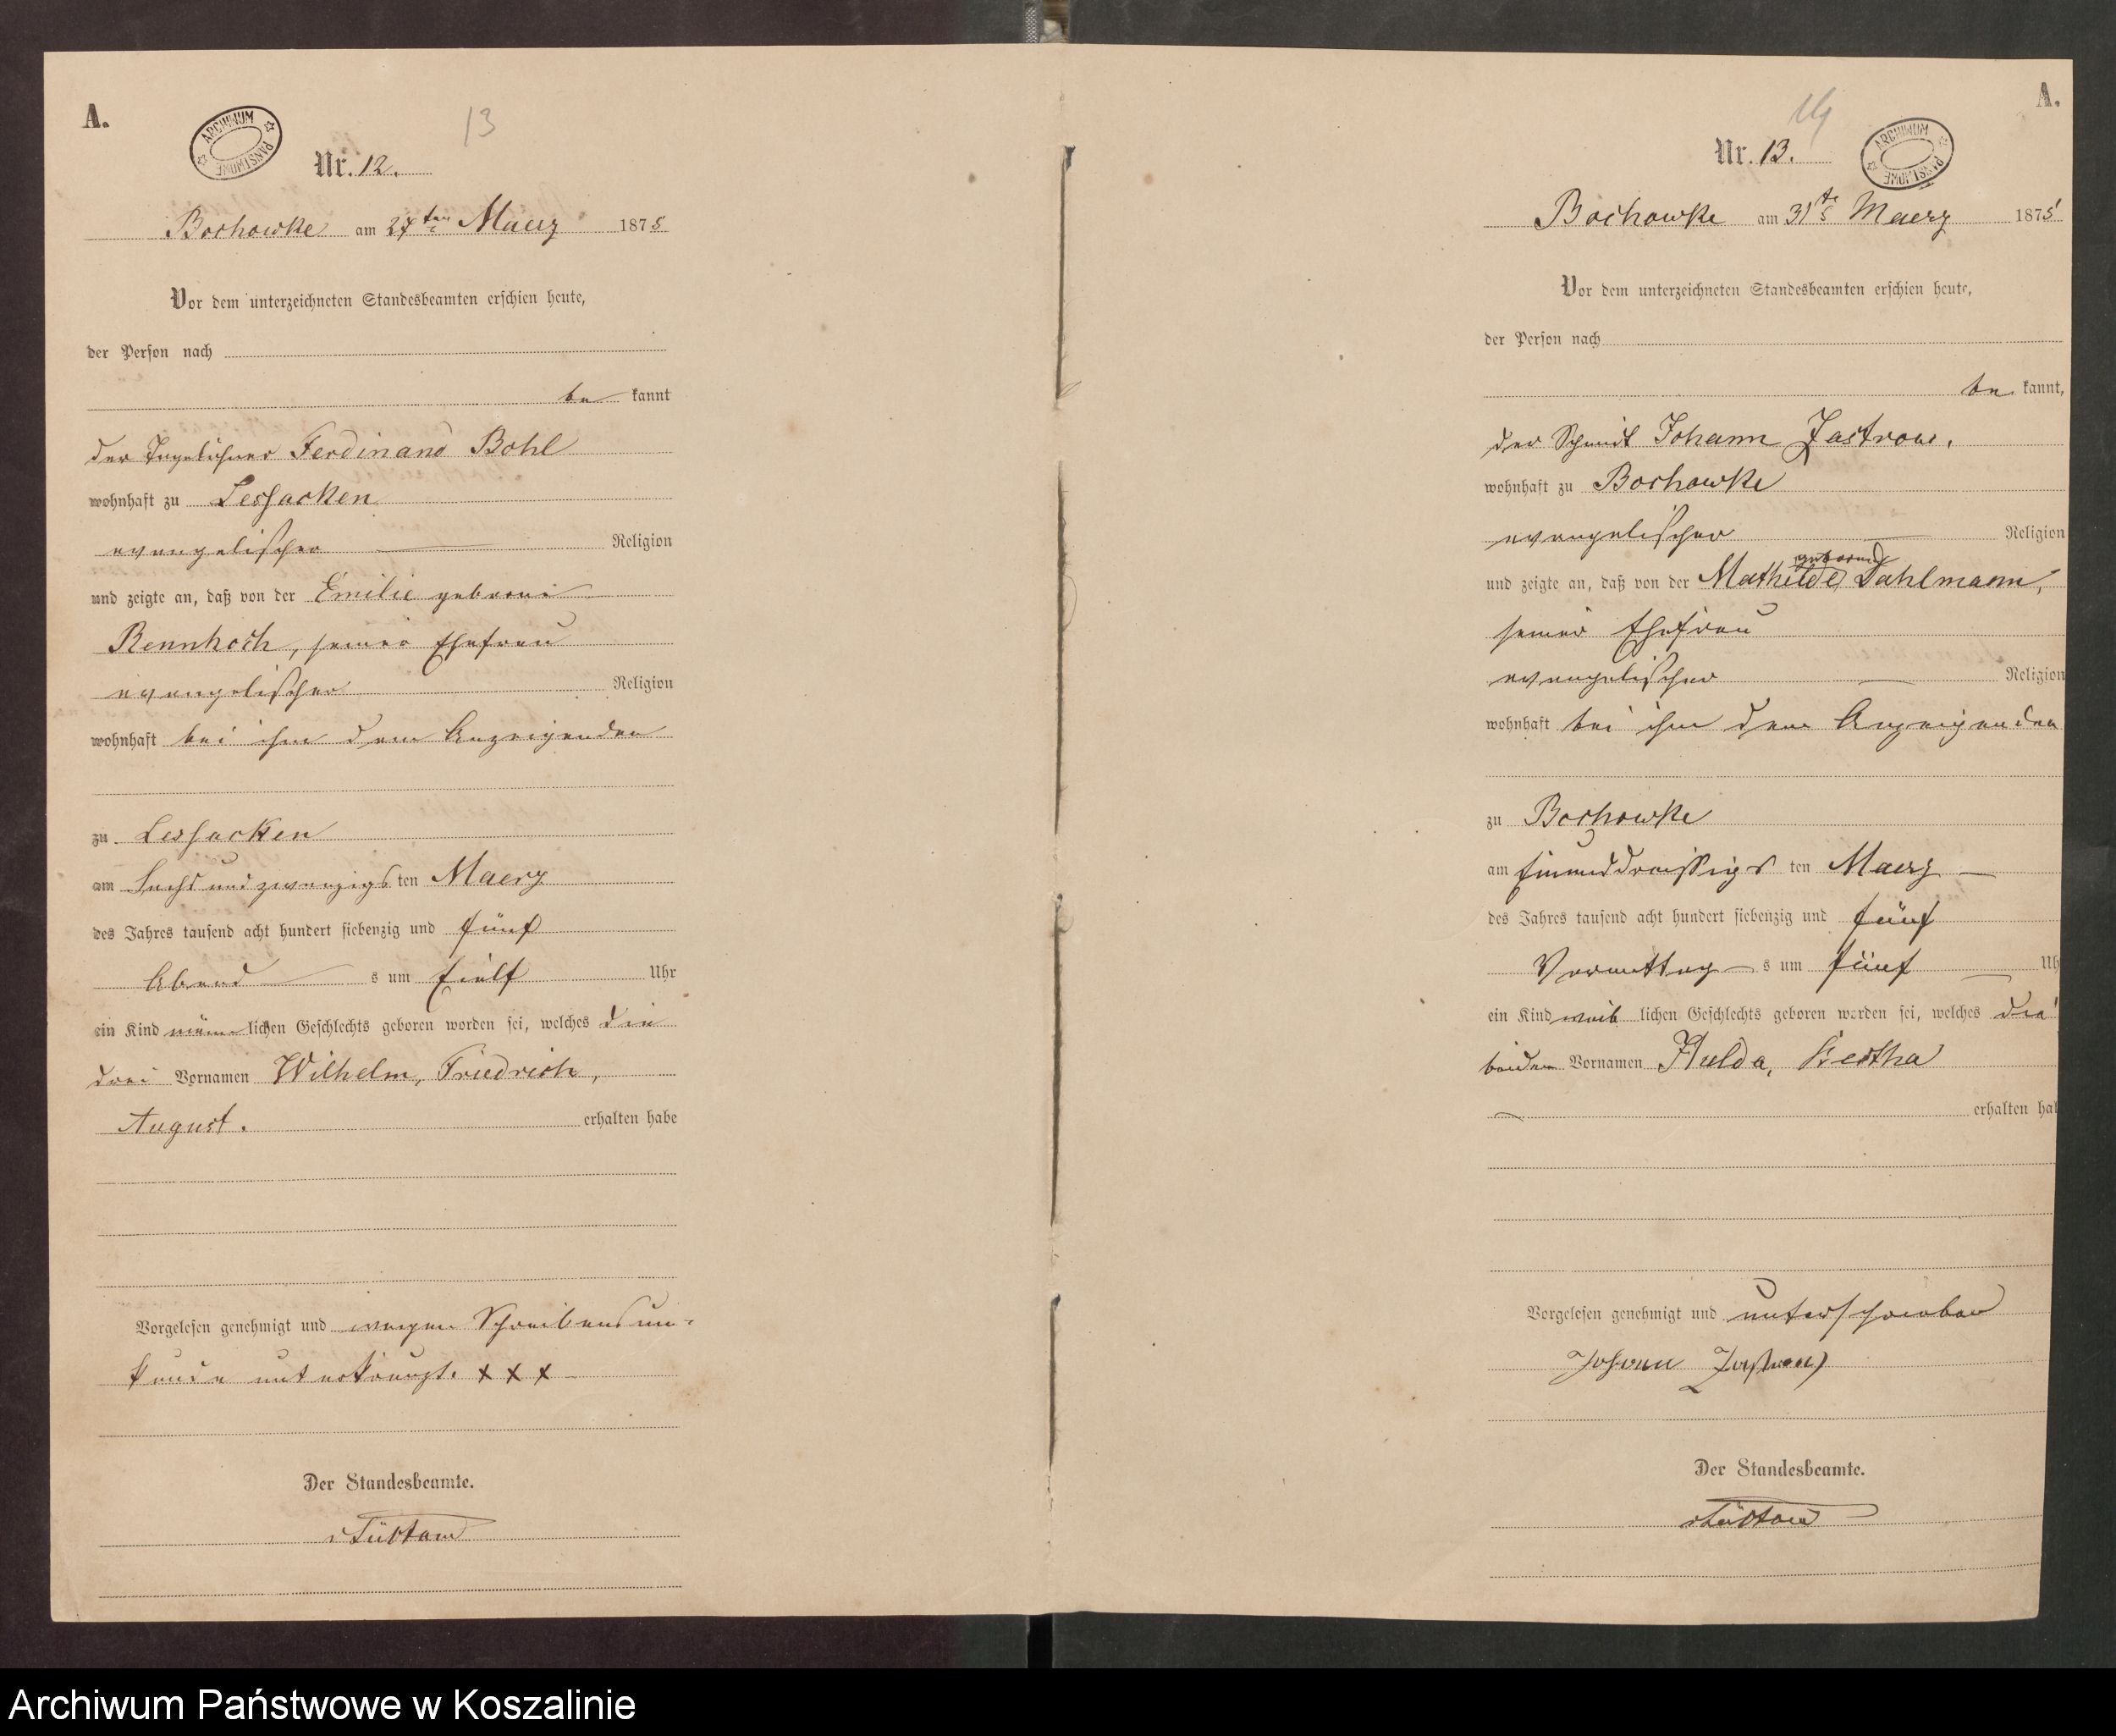 A.
ARCHIWUM PAŃSTWOWE
13
Nr. 12.
Bochowke am 27ten Maerz 1875
Vor dem unterzeichneten Standesbeamten erschien heute,
der Person nach
be kannt
der Tagelöhner Ferdinand Bohl
wohnhaft zu Lessacken
evangelischer Religion
und zeigte an, daß von der Emilie geborne
Rennhoch, seiner Ehefrau
evangelischer Religion
wohnhaft bei ihm dem Anzeigenden
zu Lessacken
am Sechs und zwanzigs ten Maerz
des Jahres tausend acht hundert siebenzig und fünf
Abend s um Eilf Uhr
ein Kind männ lichen Geschlechts geboren worden sei, welches die
drei Vornamen Wilhelm, Friedrich,
August. erhalten habe
Vorgelesen genehmigt und wegen Schreibensun-
kunde unterkreuzt. x x x
Der Standesbeamte.
A.
14
ARCHIWUM PAŃSTWOWE
Nr. 13.
Bochowke am 31ts Maerz 1875
Vor dem unterzeichneten Standesbeamten erschien heute,
der Person nach
be kannt,
der Schmidt Johann Zastrow,
wohnhaft zu Bochowke
evangelischer Religion
geborne
und zeigte an, daß von der Mathilde Dahlmann,
seiner Ehefrau
evangelischer Religion
wohnhaft bei ihm dem Anzeigenden
zu Bochowke
am Einunddreissigs ten Maerz
des Jahres tausend acht hundert siebenzig und fünf
Vormittag s um fünf Uh
ein Kind weib lichen Geschlechts geboren worden sei, welches die
beiden Vornamen Hulda, Bertha
erhalten hab
Vorgelesen genehmigt und unterschrieben
Johann Zastrow
Der Standesbeamte.
Archiwum Państwowe w Koszalinie